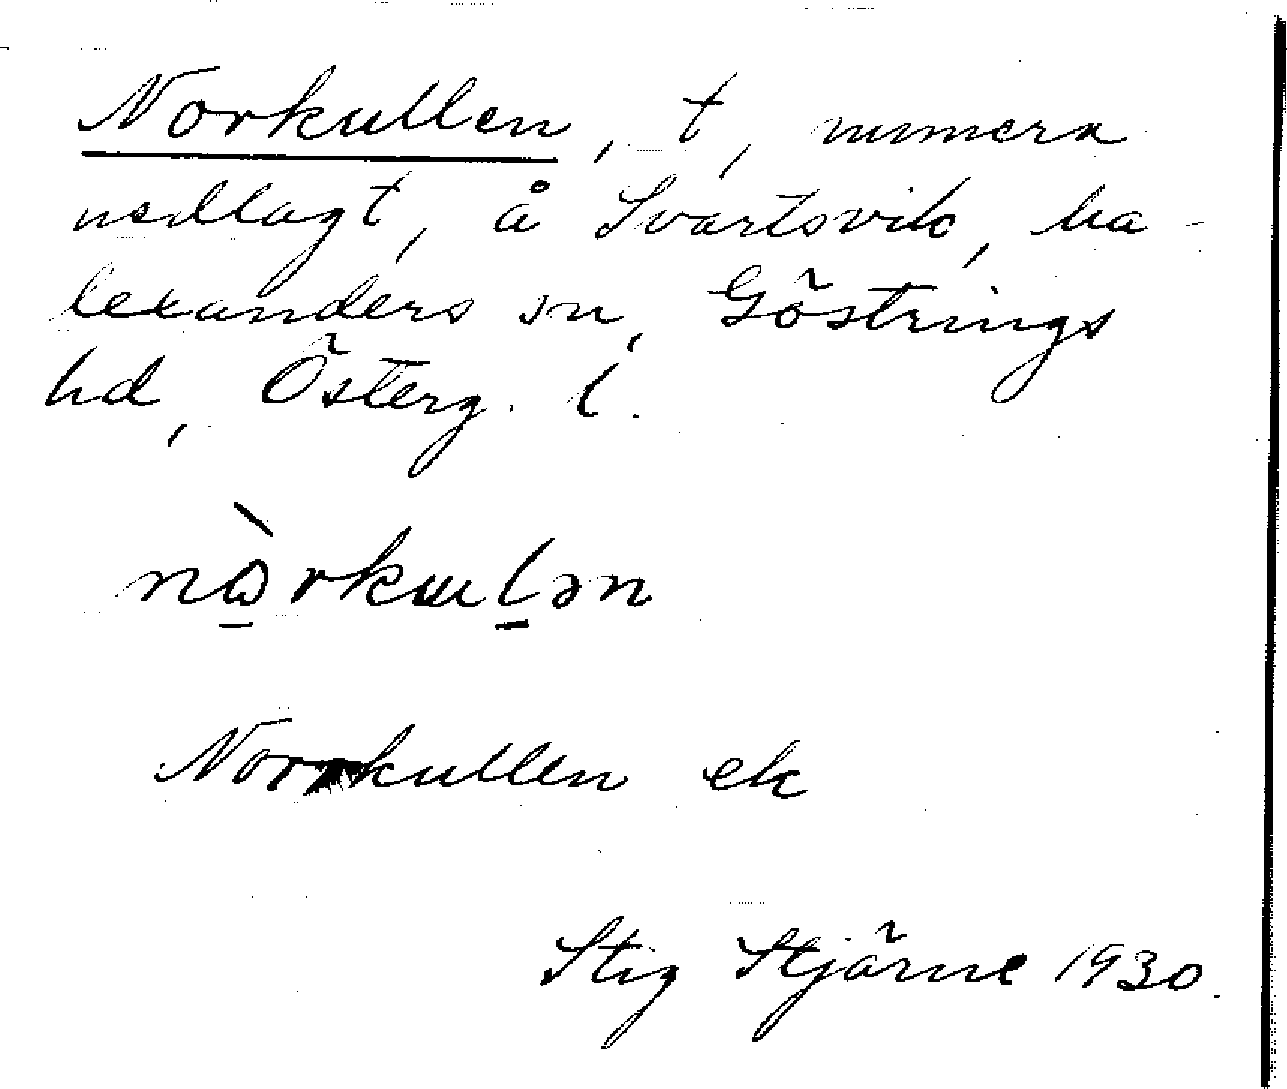 Norkullen, t, numera
nedlagt, å Svartsvik, ka-
lexanders sn, Göstrings
hd, Österg. l.
nòrkulən
Norrkullen ek
Stig Stjärne 1930.